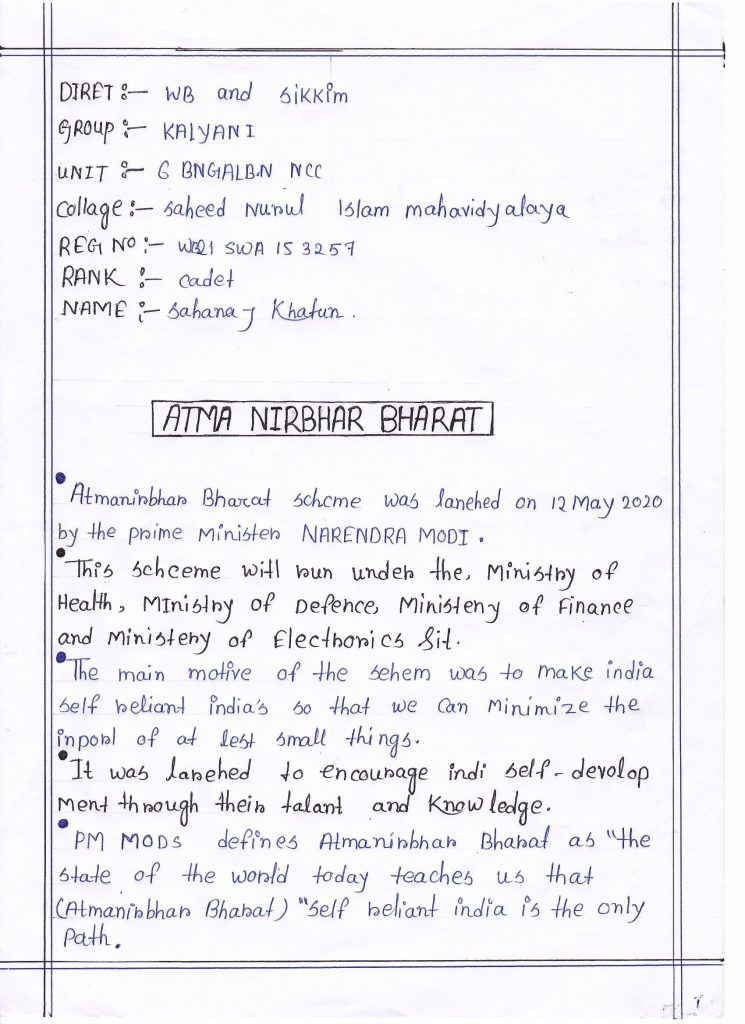 DIRET :- WB and sikkim
GROUP :- KALYANI
UNIT :- 6 BNGIALBN NCC
Collage :- saheed Nurul Islam mahavidyalaya
REG NO :- WB21 SWA 15 3257
RANK :- cadet
NAME :- sahanaj Khatun.
ATMA NIRBHAR BHARAT
• Atmanirbhar Bharat scheme was lanehed on 12 May 2020
by the prime Minister NARENDRA MODI.
• This schceme will run under the, Ministry of
Health, MInistry of Defence, Ministery of Finance
and Ministery of Electronics &it.
• The main motive of the sehem was to make india
self reliant india's so that we can minimize the
inport of at lest small things.
• It was lanehed to encourage indi self-devolop
ment through their talant and Knowledge.
• PM MODs defines Atmanirbhar Bharat as "the
state of the world today teaches us that
(Atmanirbhar Bharat) "self reliant india is the only
Path.
1